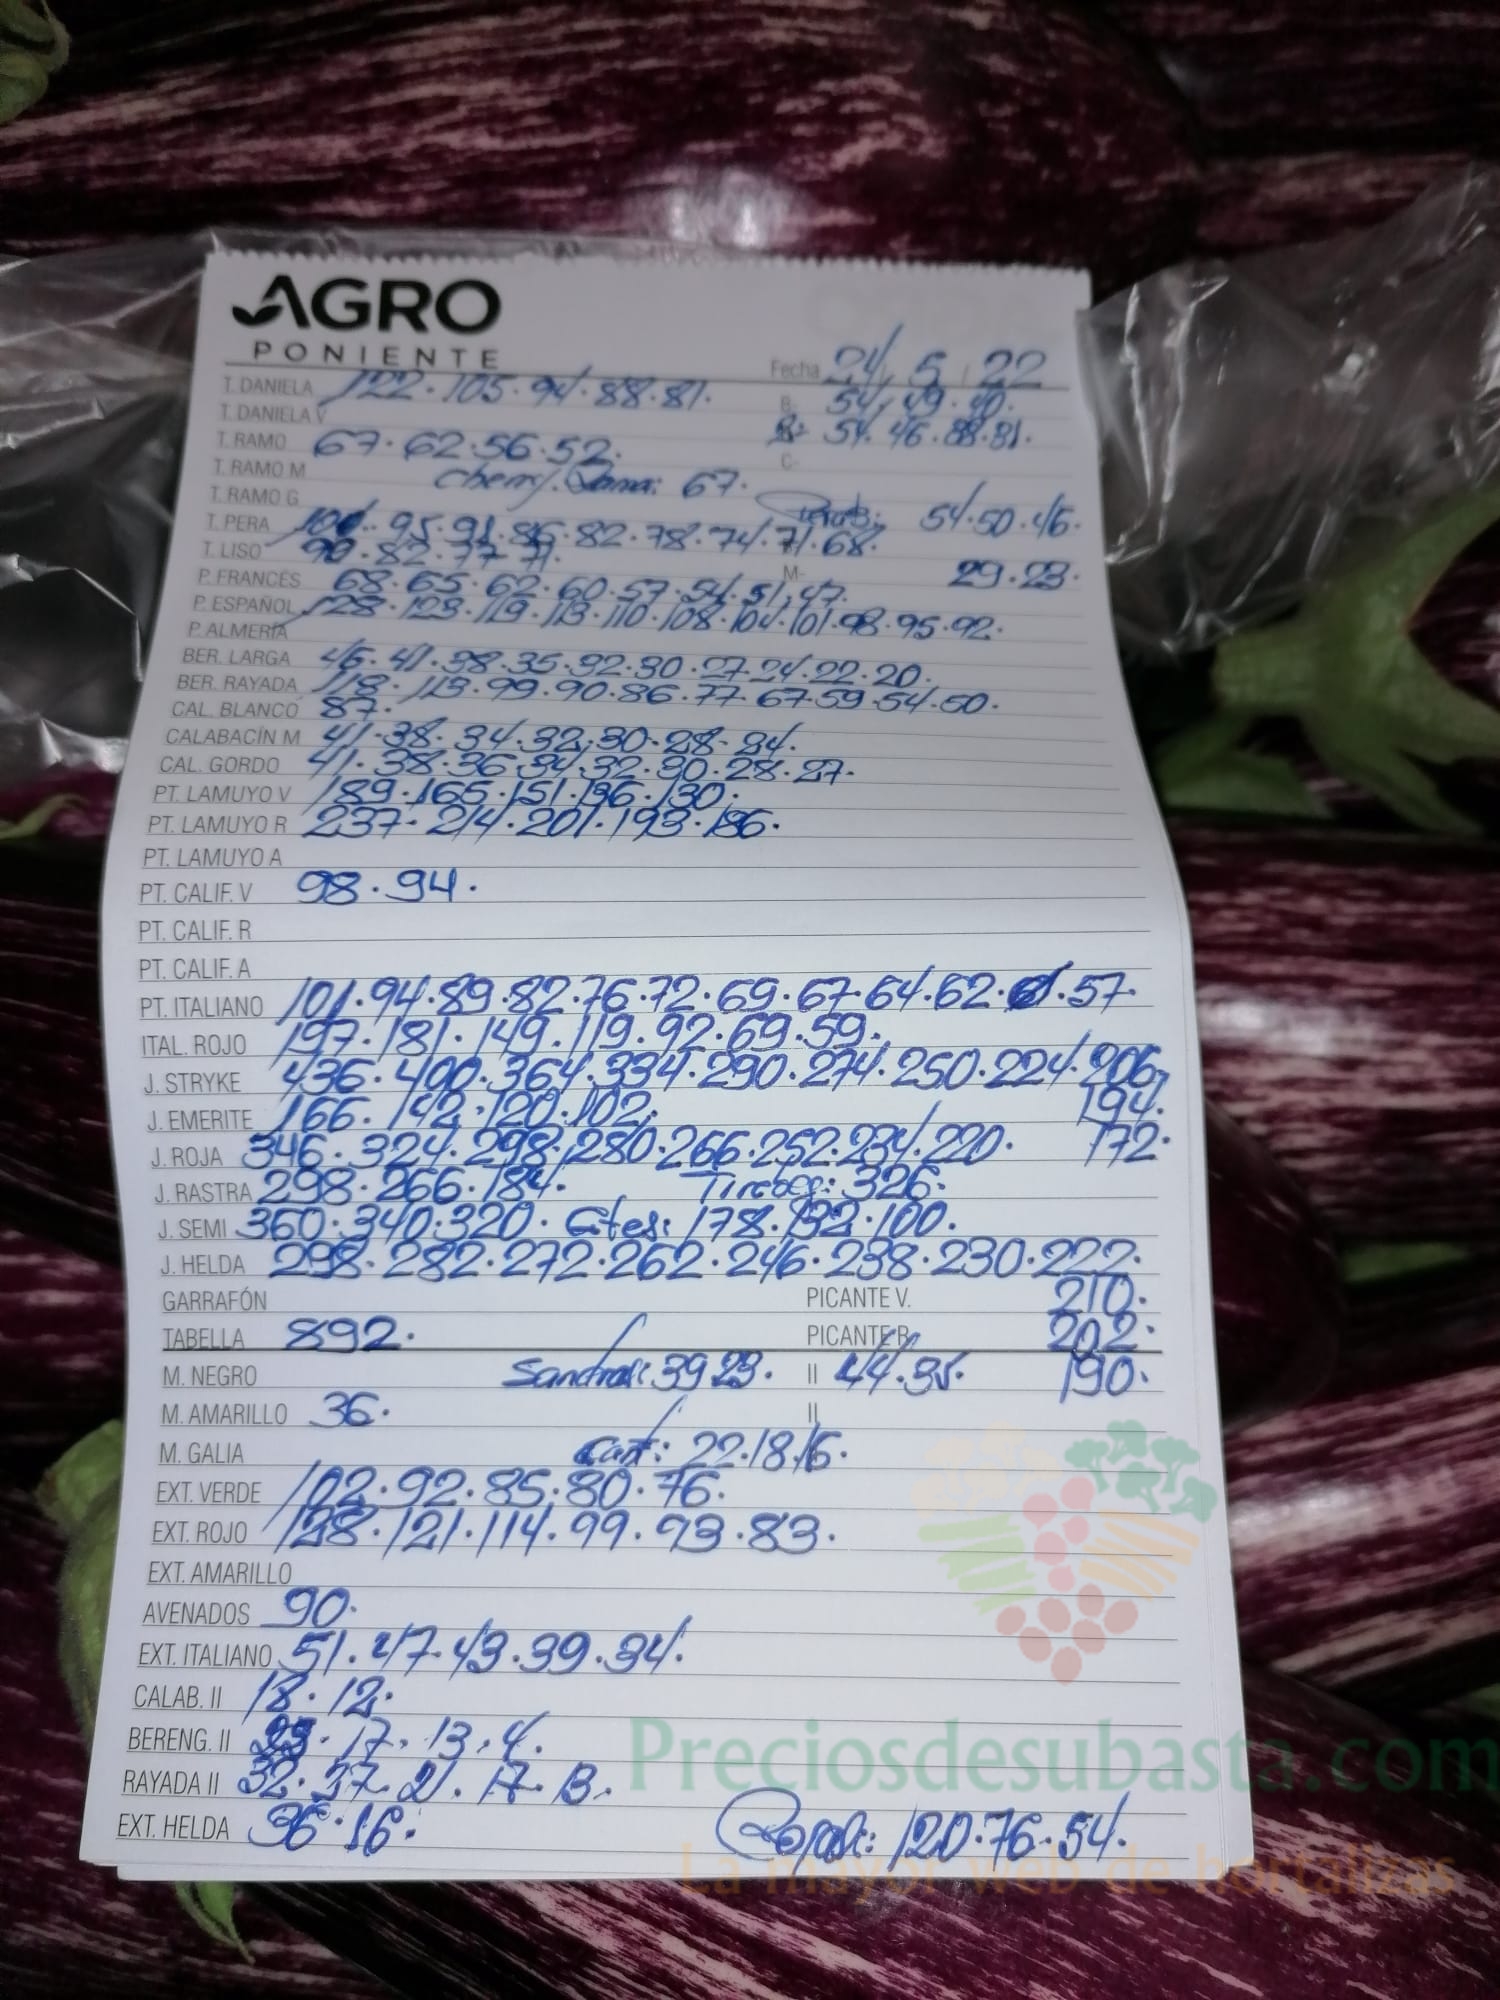 AGRO
PONIENTE
Fecha 24/ 5 / 22
T. DANIELA 122.105.94.88.81. B- 54.49.40.
T. DANIELA V 54.46.88.81.
T. RAMO 67.62.56.52. C-
T. RAMO M Cherry Rama: 67.
T. RAMO G 54.50.46.
T. PERA 95.91.86.82.78.74.71.68.
T. LISO 90.82.77.71. M- 29.23.
P. FRANCÉS 68.65.62.60.57.54.51.47.
P. ESPAÑOL 128.123.119.113.110.108.104.101.98.95.92.
P. ALMERÍA
BER. LARGA 45.41.38.35.32.30.27.24.22.20.
BER. RAYADA 118.113.99.90.86.77.67.59.54.50.
CAL. BLANCO 87.
CALABACÍN M 41.38.34.32.30.28.24.
CAL. GORDO 41.38.36.34.32.30.28.27.
PT. LAMUYO V 189.165.151.136.130.
PT. LAMUYO R 237.214.201.193.186.
PT. LAMUYO A
PT. CALIF. V 98.94.
PT. CALIF. R
PT. CALIF. A
PT. ITALIANO 101.94.89.82.76.72.69.67.64.62.61.57.
ITAL. ROJO 197.181.149.119.92.69.59.
J. STRYKE 436.400.364.334.290.274.250.224.206.
J. EMERITE 166.142.120.102. 194.
J. ROJA 346.324.298.280.266.252.234.220. 172.
J. RASTRA 298.266.184. Tirabeq: 326.
J. SEMI 360.340.320. Ctes: 178.132.100.
J. HELDA 298.282.272.262.246.238.230.222.
GARRAFÓN PICANTE V. 210.
TABELLA 892. PICANTE R. 202.
M. NEGRO Sandías: 39 23. II 44.35. 190.
M. AMARILLO 36. II
M. GALIA Cant: 22.18.16.
EXT. VERDE 102.92.85.80.76.
EXT. ROJO 128.121.114.99.93.83.
EXT. AMARILLO
AVENADOS 90.
EXT. ITALIANO 51.47.43.39.34.
CALAB. II 18.12.
BERENG. II 17.13.4.
RAYADA II 32.37.21.17.13.
EXT. HELDA 36.16. 120.76.54.
Preciosdesubasta.com
La mayor web de hortalizas